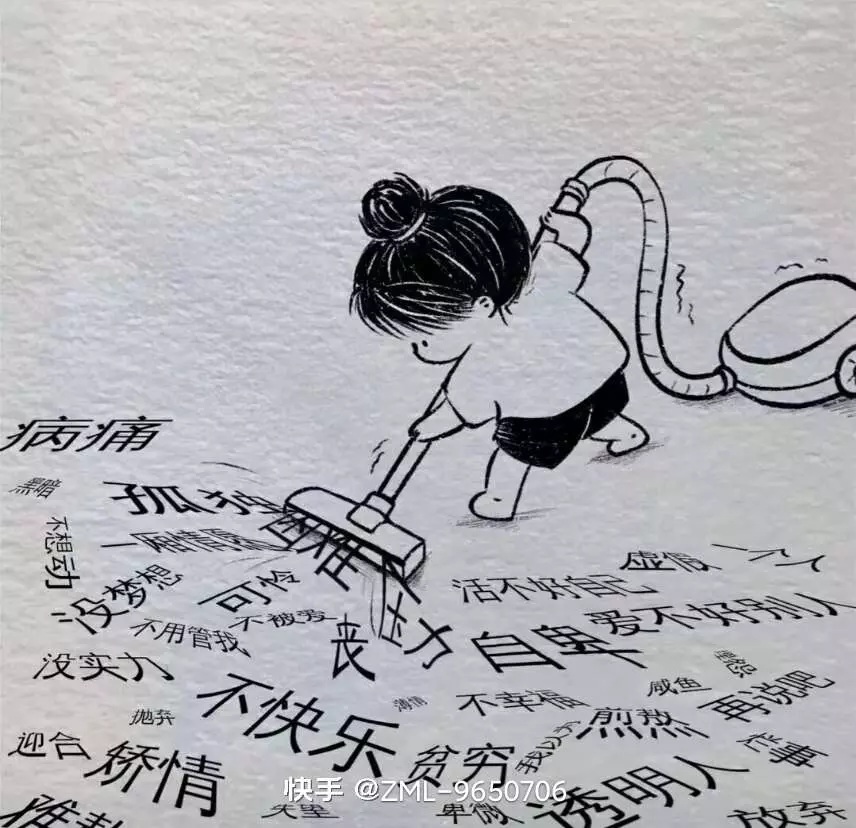 病痛
孤独
不想动
一厢情愿
没梦想
可怜
不被爱
不用管我
没实力
丧
压力
虚假
一个人
活不好自己
爱不好别人
自卑
不快乐
抛弃
薄情
不幸福
咸鱼
再说吧
煎熬
我以为
迎合
矫情
贫穷
透明人
失望
卑微
放弃
快手 @ZML-9650706